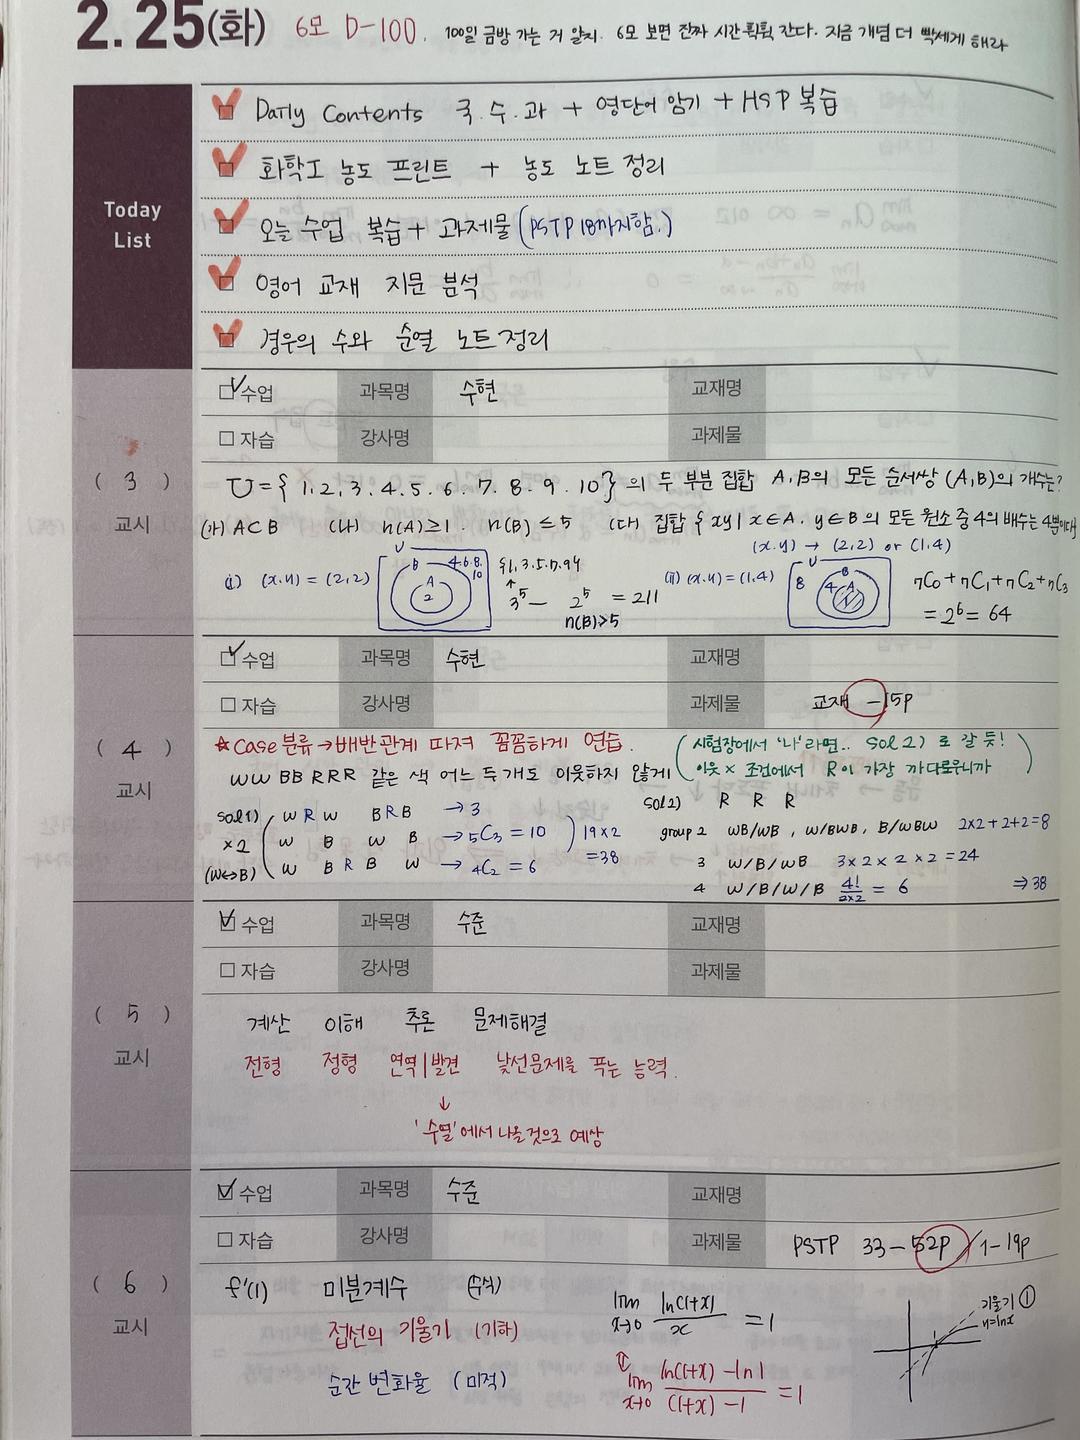 2.25(화) 6모 D-100. 100일 금방 가는 거 알지. 6모 보면 진짜 시간 휙휙 간다. 지금 개념 더 빡세게 해라
Today List
Daily Contents 국.수.과 + 영단어 암기 + HSP 복습
화학I 농도 프린트 + 농도 노트 정리
오늘 수업 복습 + 과제물 (PSTP 18까지함.)
영어 교재 지문 분석
경우의 수와 순열 노트 정리
( 3 ) 교시
수업 과목명 수현 교재명
자습 강사명 과제물
U={1.2.3.4.5.6.7.8.9.10}의 두 부분 집합 A,B의 모든 순서쌍 (A,B)의 개수는?
(가) A⊂B (나) n(A)≥1. n(B)≤5 (다) 집합 {xy| x∈A. y∈B의 모든 원소 중 4의 배수는 4뿐이다}
(x.y) → (2,2) or (1,4)
(i) (x.y) = (2,2) U B A 2 4.6.8. 10 {1.3.5.7.9} 3⁵ - 2⁵ = 211
n(B)>5
(ii) (x.y) = (1,4) U 8 B 4 A ₇C₀+₇C₁+₇C₂+₇C₃
= 2⁶ = 64
( 4 ) 교시
수업 과목명 수현 교재명
자습 강사명 과제물 교재 -15p
☆Case 분류→배반관계 따져 꼼꼼하게 연습.
(시험장에서 '나'라면.. Sol 2)로 갈 듯!
이웃× 조건에서 R이 가장 까다로우니까)
WW BB RRR 같은 색 어느 두개도 이웃하지 않게
sol1) W R W B R B → 3
×2 W B W B → ₅C₃ = 10
(W↔B) W B R B W → ₄C₂ = 6
19×2
=38
Sol2) R R R
group 2 WB/WB, W/BWB, B/WBW 2×2+2+2=8
3 W/B/WB 3×2×2×2=24
4 W/B/W/B 4!/2×2 = 6 ⇒38
( 5 ) 교시
수업 과목명 수준 교재명
자습 강사명 과제물
계산 이해 추론 문제해결
전형 정형 연역|발견 낯선문제를 푸는 능력.
↓
'수열'에서 나올 것으로 예상
( 6 ) 교시
수업 과목명 수준 교재명
자습 강사명 과제물 PSTP 33-52p / 1-19p
f'(1) 미분계수 (수식)
접선의 기울기 (기하)
순간 변화율 (미적)
lim x→0 ln(1+x)/x = 1
⇕
lim x→0 ln(1+x)-ln1/(1+x)-1 = 1
기울기 ①
y=lnx